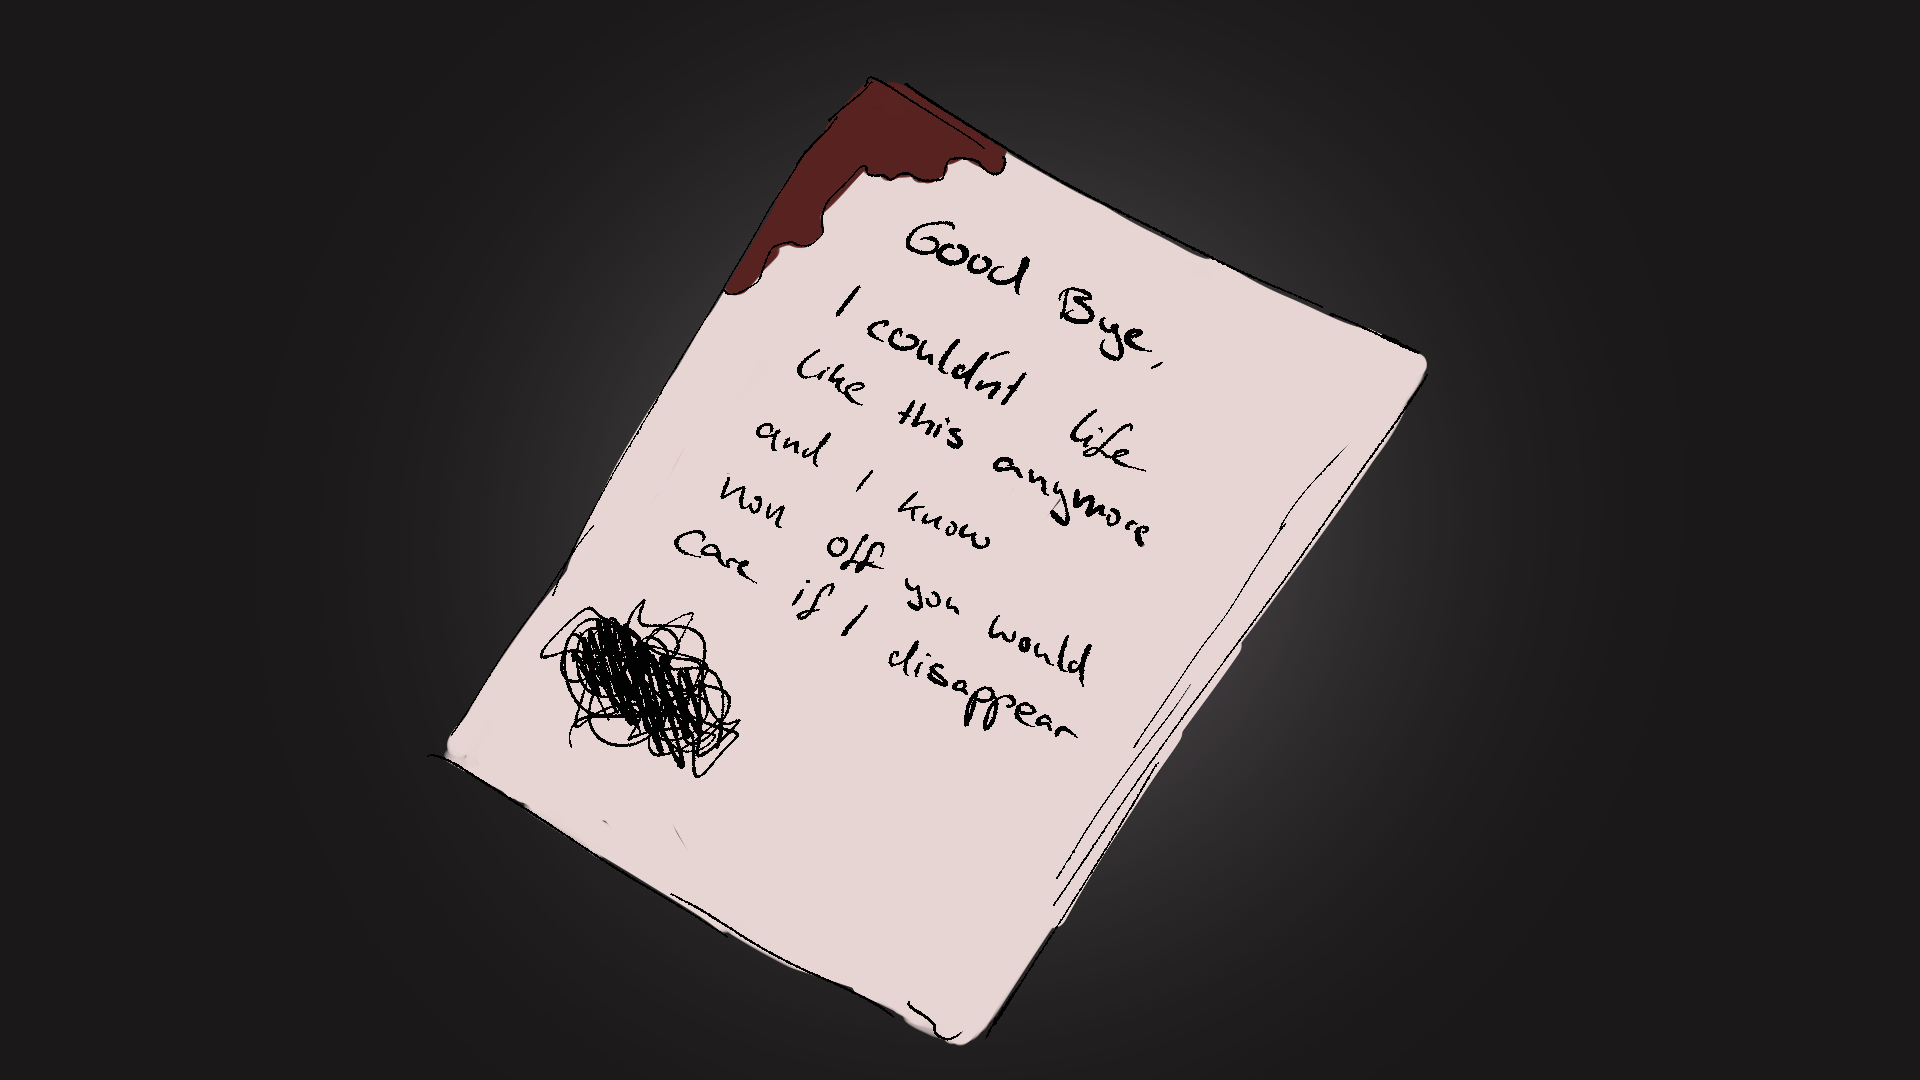 Good Bye,
I couldn't life
like this anymore
and I know
non off you would
care if I disappear